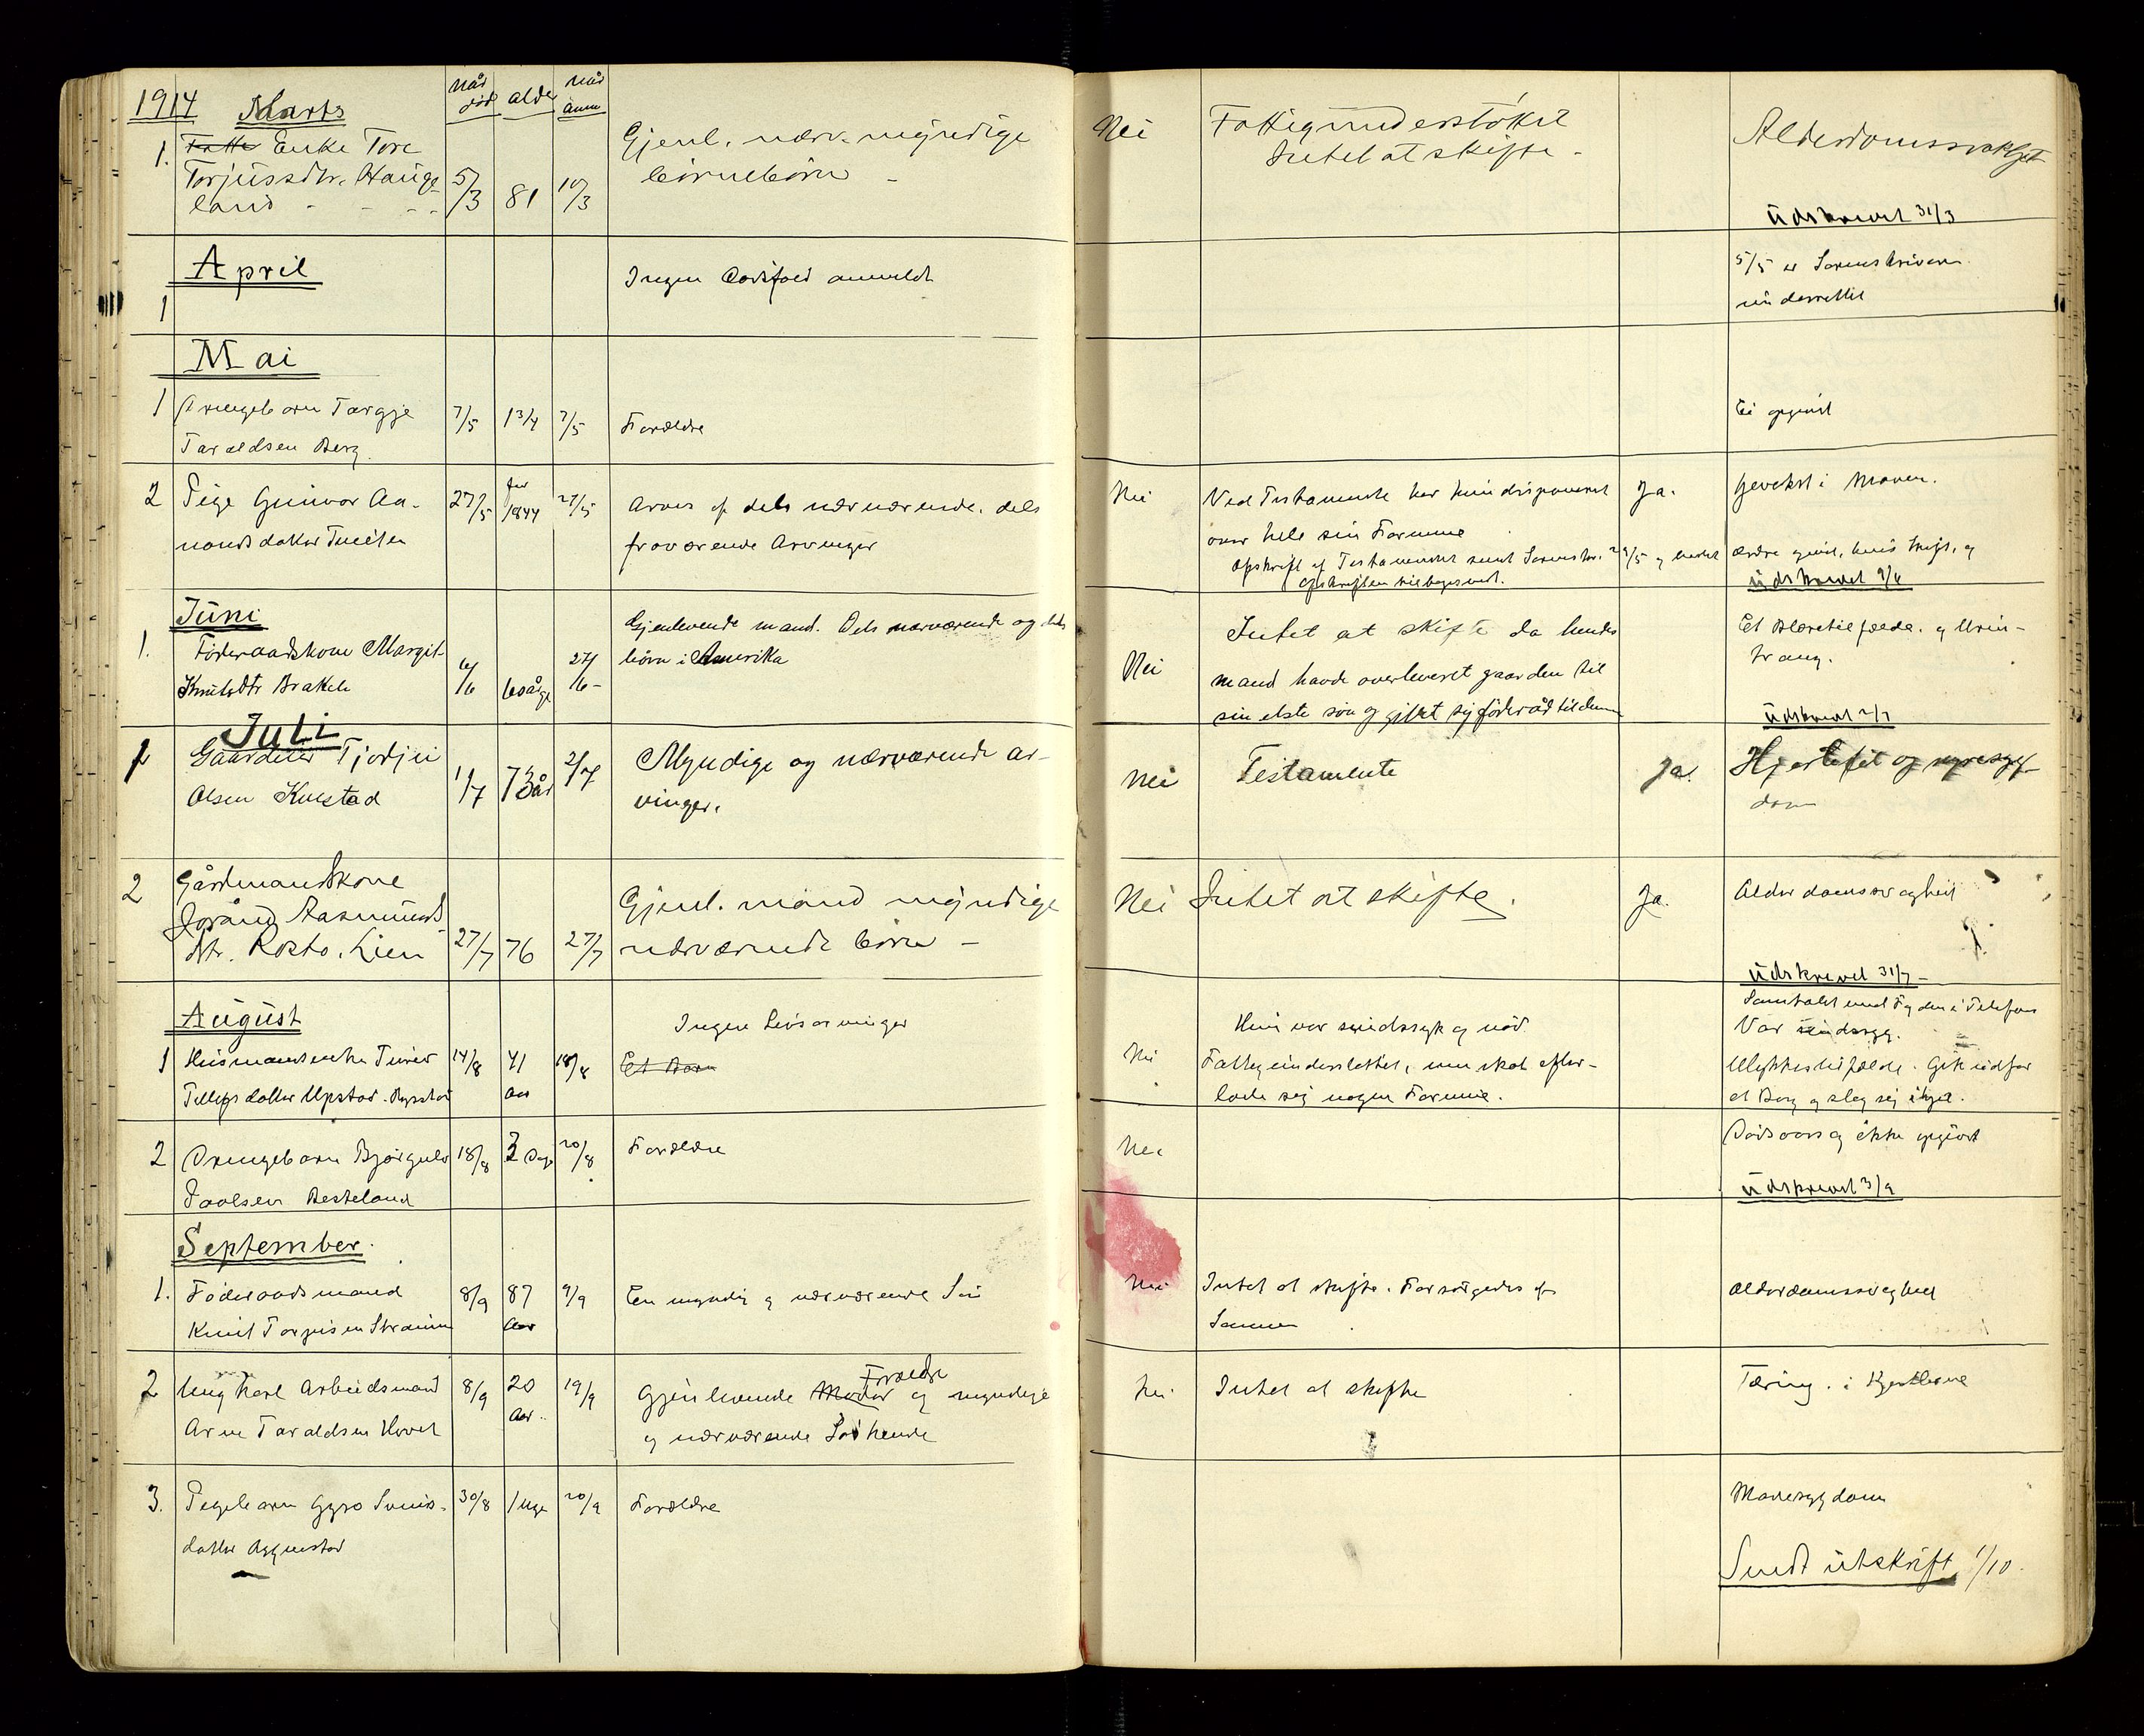 1914 Marts
når død alder når anm
1. Fatt Enke Tore
Torjussdtr. Hauge-
land 5/3 81 10/3
Gjenl. nærv. myndige
børnebørn -
Nei Fattigunderstøttet
Intet at skifte -
Alderdomssvakhet
Udskrevet 31/3
April
1
Ingen Dødsfald anmeldt
5/5 er Sorenskriveren
underrettet
Mai
1 Drengebarn Torgje
Taraldsen Berg 7/5 1 3/4 7/5 Forældre
Ei opgivet
2 Pige Gunvor Aa-
nonsdatter 27/5 før 1844 27/5
Arves af dels nærværende, dels
fraværende Arvinger
Nei Ved Testamente har hun disponeret Ja.
over hele sin Formue
Afskrift af Testamentet sendt Sorenskr. 29/5 og
Afskriften tilbagesendt.
Gevekst i Maven.
Udskrevet
Juni
1. Føderaadskone Margit
Knutsdtr Brakele 6/6 60 år 27/6-
Gjenlevende mand. Dels nærværende og dels
børn i Amerika
Nei Intet at skifte da hendes
mand havde overleveret gaarden til
sin elste søn og giftet sig
Et Blæretilfælde. og Urin-
trang.
Udskrevet 2/7
Juli
1 Gaardeier Tjodjei
Olsen Kvestad 1/7 73 år 2/7
Myndige og nærværende ar-
vinger.
Nei Testamente Ja.
Hjertefeil og nyresyg-
dom
2 Gårdmandskone
Jorånd Aasmunds-
dtr. Rosto. Lien 27/7 76 27/7
Gjenl. mand myndige
nærværende børn -
Nei Intet at skifte. Ja.
Alderdomssvaghed
Udskrevet 31/7 -
August
1 Husmandsenke Turid
Tellefsdatter Upstad. Rysstad 14/8 41 aar 18/8
Ingen Livsarvinger
Et Barn
Nei Hun var sindssyk og nød
Fattigunderstøttet, men skal efter-
lade sig nogen Formue.
Samtalet med Fogden i Telefon
Var sindssyg.
Ulykkestilfælde. Gik udfor
et Berg og slog sig ihjel.
2 Drengebarn Bjørgulv
Paalsen Besteland 18/8 3 Dage 20/8 Forældre
Nei
Dødsaarsag ikke opgivet
Udskrevet 3/9
September.
1. Føderaadsmand
Knut Torjusen Straum 8/9 87 Aar 9/9
En myndig og nærværende Søn
Nei Intet at skifte. Forsørgedes af
Sønnen
Alderdomssvaghed
2 Ungkarl Arbeidsmand
Arne Taraldsen Hovet 8/9 20 Aar. 19/9
Forældre
Gjenlevende Moder og myndige
og nærværende Søskende
Nei Intet at skifte
Tæring. i Kjertlerne
3. Pigebarn Gyro Svenis-
datter 30/8 1 Uge 20/9 Forældre
Mavesygdom
Sendt utskrift 1/10.